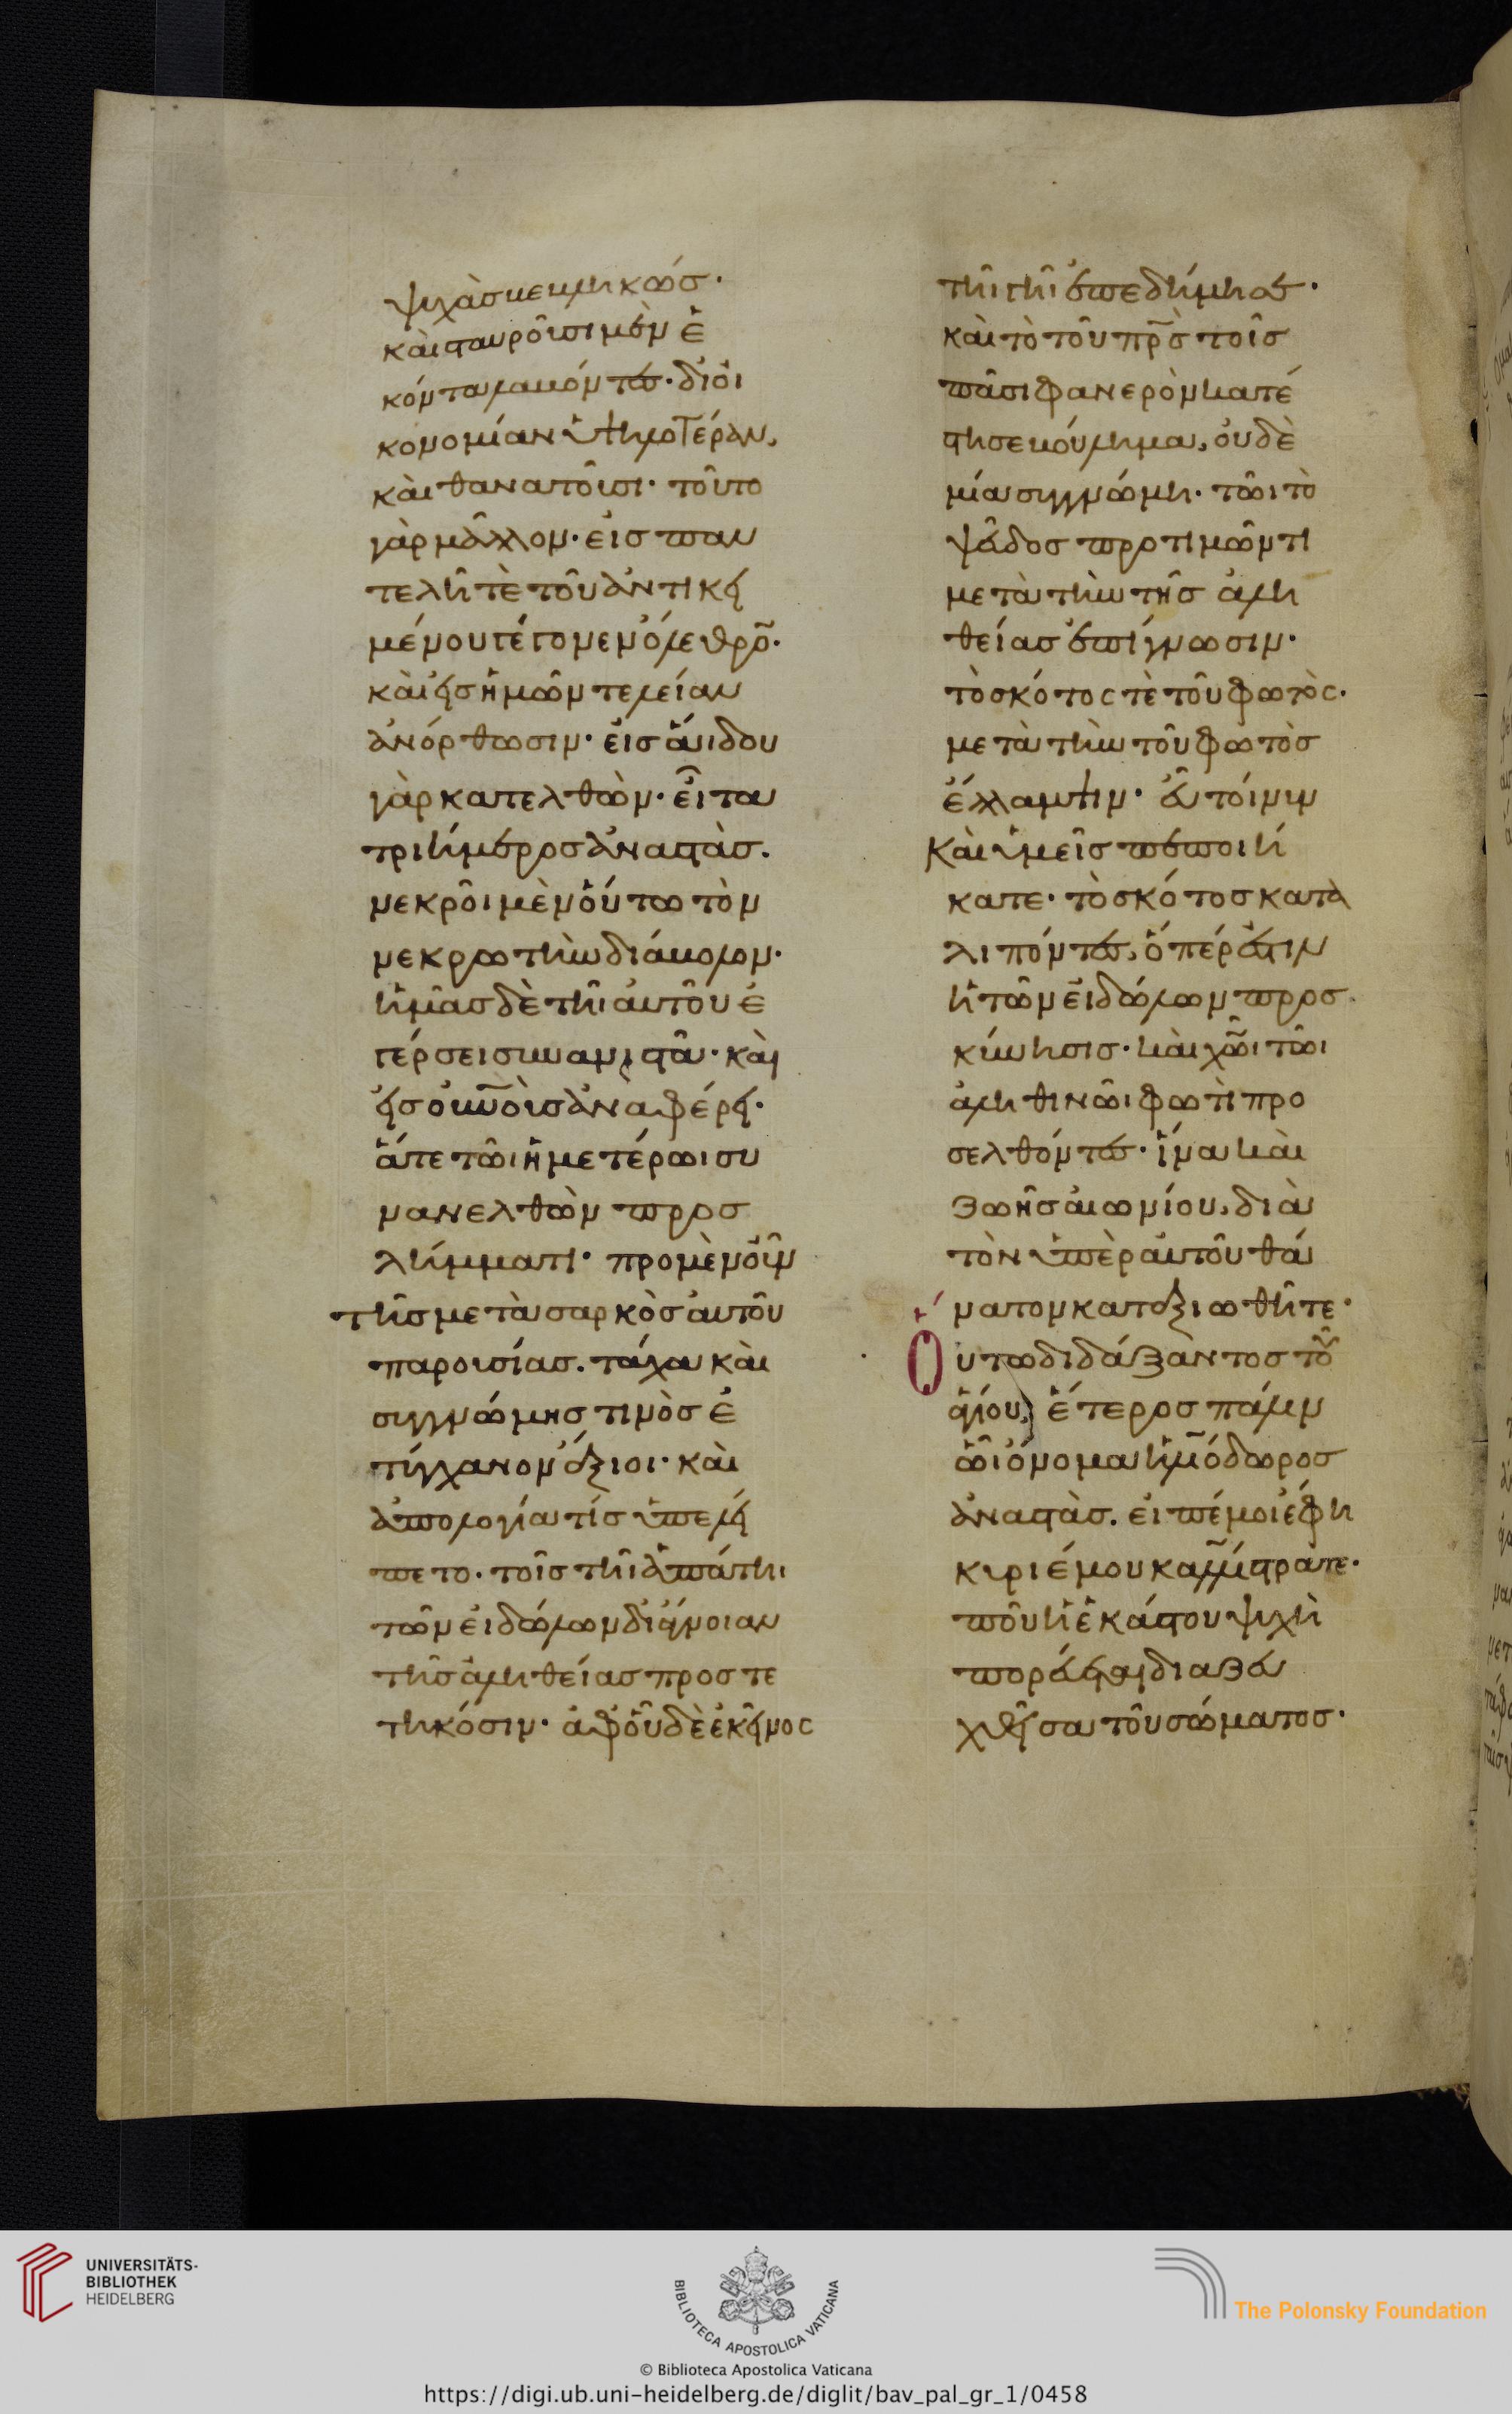 ψυχὰς κεκμηκώς·
καὶ σταυροῦσι μὲν ἑ
κόντα λακόντες· δι' οἰ
κονομίαν ὑψηλοτέραν,
καὶ θανατοῦσι· τοῦτο
γὰρ μᾶλλον· εἰς παν
τελῆ τὲ τοῦ ἀντικει
μένου γέγονεν ὄλεθρο̃·
καὶ εἰς ἡμῶν τελείαν
ἀνόρθωσιν· εἰς ἅιδου
γὰρ κατελθὼν· εἶτα
τριήμερος ἀναστὰς.
νεκροῖ μὲν οὕτω τὸν
νεκρωτὴν διάβολον·
ἡμᾶς δὲ τῆι αὐτοῦ ἐ
γέρσει συνανιστᾶ· καὶ
εἰς οὐνοὺς ἀναφέρει·
ἅτε τῶι ἡμετέρωι συ
νανελθὼν προσ
λήμματι· πρὸ μὲν οὖν
τῆς μετὰ σαρκὸς αὐτοῦ
παρουσίας. τάχα καὶ
συγγνώμης τινὸς ἐ
τύγχανον ἄξιοι· καὶ
ἀπολογία τίς ὑπελεί
πετο. τοῖς τῆι ἀπάτηι
τῶν εἰδώλων δι' ἄγνοιαν
τῆς ἀληθείας προστε
τηκόσιν· ἀφ' οὗ δὲ ἐκεῖνος
τῆι γῆι ἐπεδήμησε·
καὶ τὸ τοῦ πρ̃ς τοῖς
πᾶσι φανερὸν κατέ
στησε βούλημα, οὐδὲ
μία συγγνώμη· τῶι τὸ
ψεῦδος προτιμῶντι
μετὰ τὴν τῆς ἀλη
θείας ἐπίγνωσιν·
τὸ σκότος τὲ τοῦ φωτὸς·
μετὰ τὴν τοῦ φωτὸς
ἔλλαμψιν· εὖ τοίνυν
καὶ ὑμεῖς πεποιή
κατε· τὸ σκότος κατα
λιπόντες, ὅπέρ ἐστιν
ἡ τῶν εἰδώλων προσ
κύνησις· καὶ χῶ̃ι τῶι
ἀληθινῶι φωτὶ προ
σελθόντες· ἵνα καὶ
ζωῆς αἰωνίου, διὰ
τὸν ὑπὲρ αὐτοῦ θά
νατον καταξιωθῆτε·
Οὕτω διδάξαντος τοῦ
ἁγίου, ἕτερος πάλιν
ὧι ὄνομα ἡλιόδωρος
ἀναστὰς. εἰπέ μοι ἔφη
κύριέ μου καλλίστρατε·
ποῦ ἡ ἑκάστου ψυχὴ
πορεύεται διαζευ
χθεῖσα τοῦ σώματος·
UNIVERSITÄTS-
BIBLIOTHEK
HEIDELBERG
BIBLIOTECA APOSTOLICA VATICANA
The Polonsky Foundation
© Biblioteca Apostolica Vaticana
https://digi.ub.uni-heidelberg.de/diglit/bav_pal_gr_1/0458